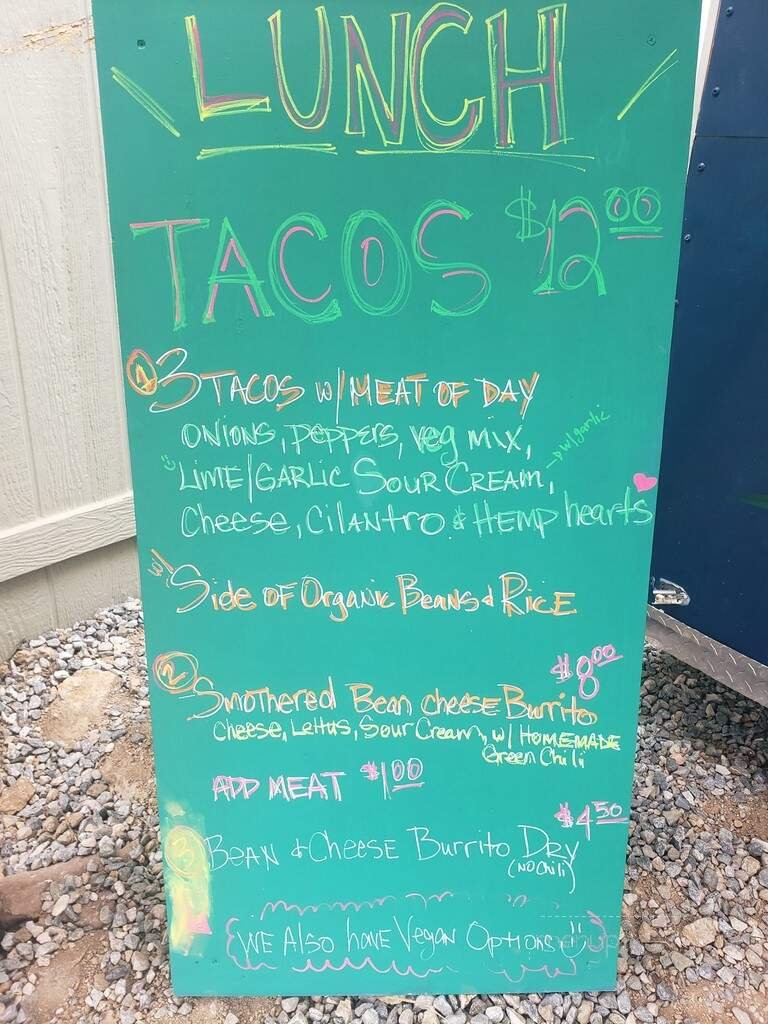 LUNCH
TACOS $12.00
① 3 TACOS w/ MEAT OF DAY
ONIONS, peppers, veg mix,
→ w/garlic
LIME/GARLIC SOUR CREAM,
Cheese, Cilantro & HEMP hearts
w/ Side of Organic Beans & RICE
$8.00
② Smothered Bean cheese Burrito
Cheese, Lettus, Sour Cream, w/ HOMEMADE
Green Chili
ADD MEAT $1.00
$4.50
③ BEAN & Cheese Burrito DRY
(NO Chili)
WE Also have Vegan Options